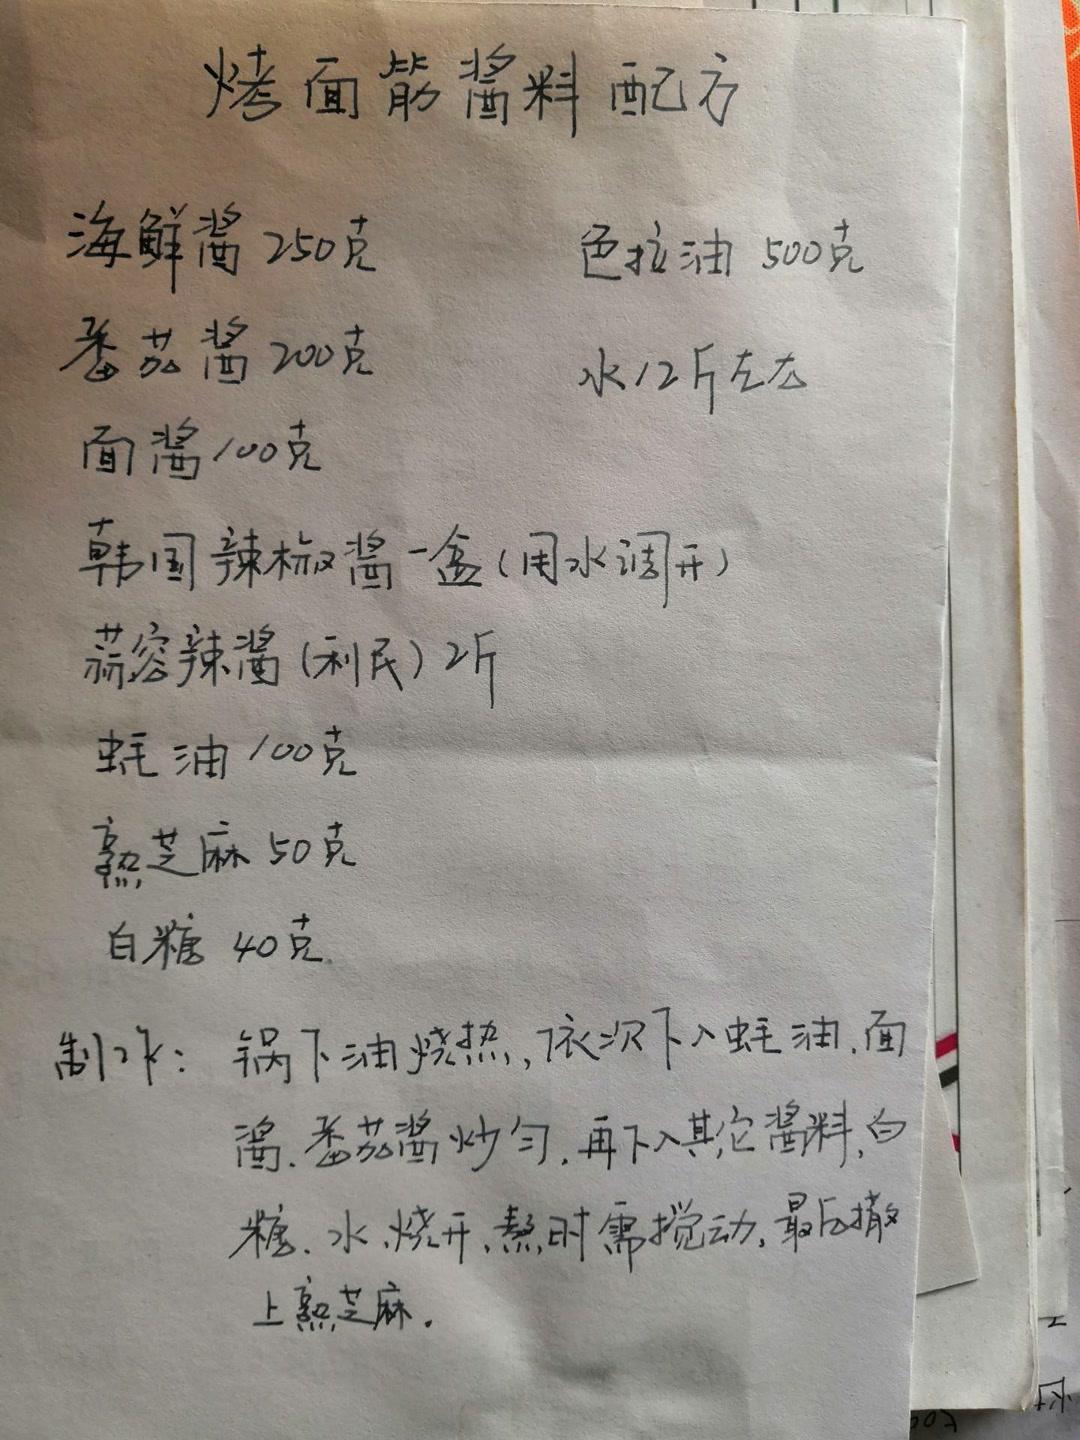 烤面筋酱料配方
海鲜酱250克
色拉油500克
番茄酱200克
水12斤左右
面酱100克
韩国辣椒酱一盒(用水调开)
蒜容辣酱(利民)2斤
蚝油100克
熟芝麻50克
白糖40克
制作:锅下油烧热,依次下入蚝油、面
酱、番茄酱炒匀,再下入其它酱料、白
糖、水、烧开、熬时需搅动,最后撒
上熟芝麻.